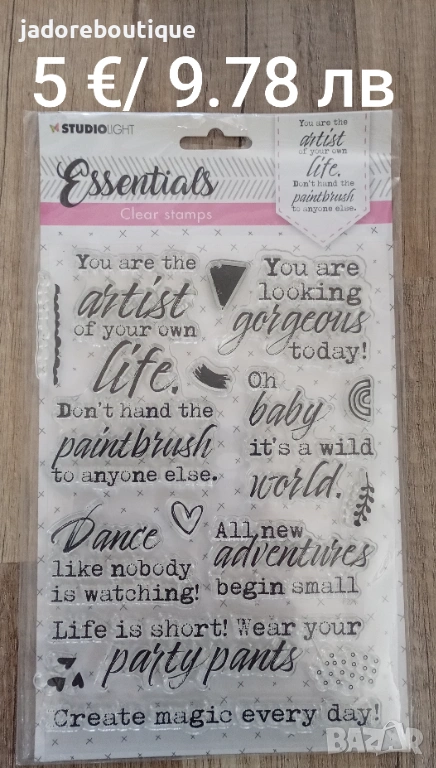 jadoreboutique
5 €/ 9.78 лв
STUDIOLIGHT
Essentials
Clear stamps
You are the
artist
of your own
life.
Don't hand the
paintbrush
to anyone else.
You are the
artist
of your own
life.
Don't hand the
paintbrush
to anyone else.
You are
looking
gorgeous
today!
Oh
baby
it's a wild
world.
Dance
like nobody
is watching!
All new
adventures
begin small
Life is short! Wear your
party pants
Create magic every day!
BAZAR